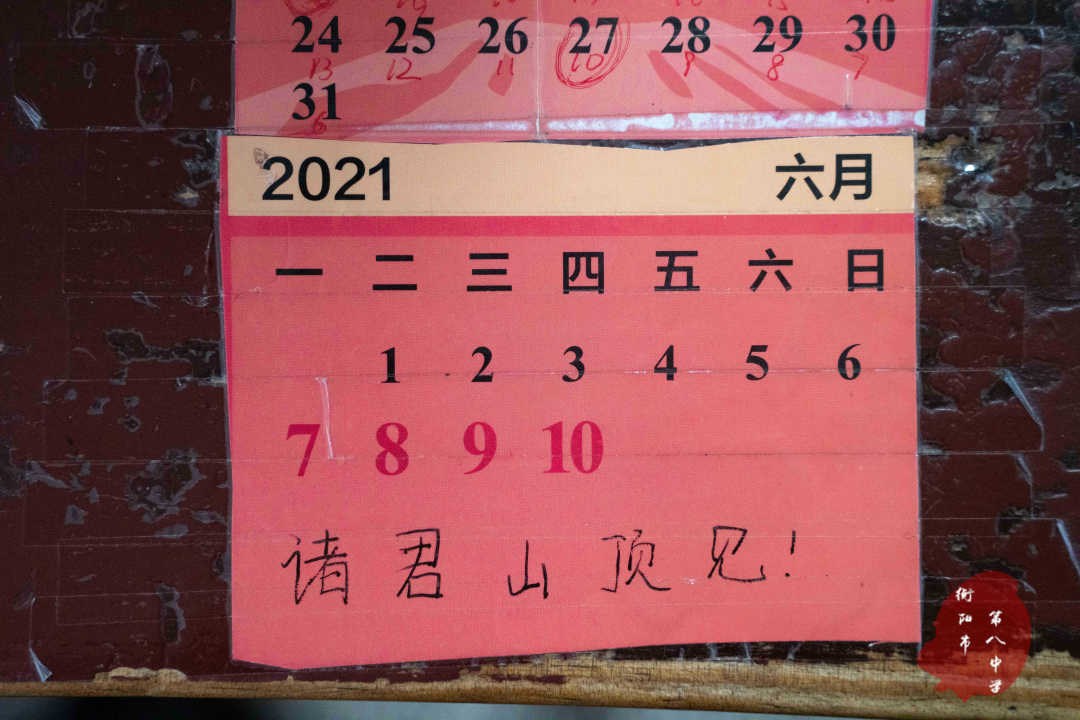 24 25 26 27 28 29 30
13 12 11 10 9 8 7
31
6
2021 六月
一 二 三 四 五 六 日
1 2 3 4 5 6
7 8 9 10
诸君山顶见!
衡阳市
第八中学